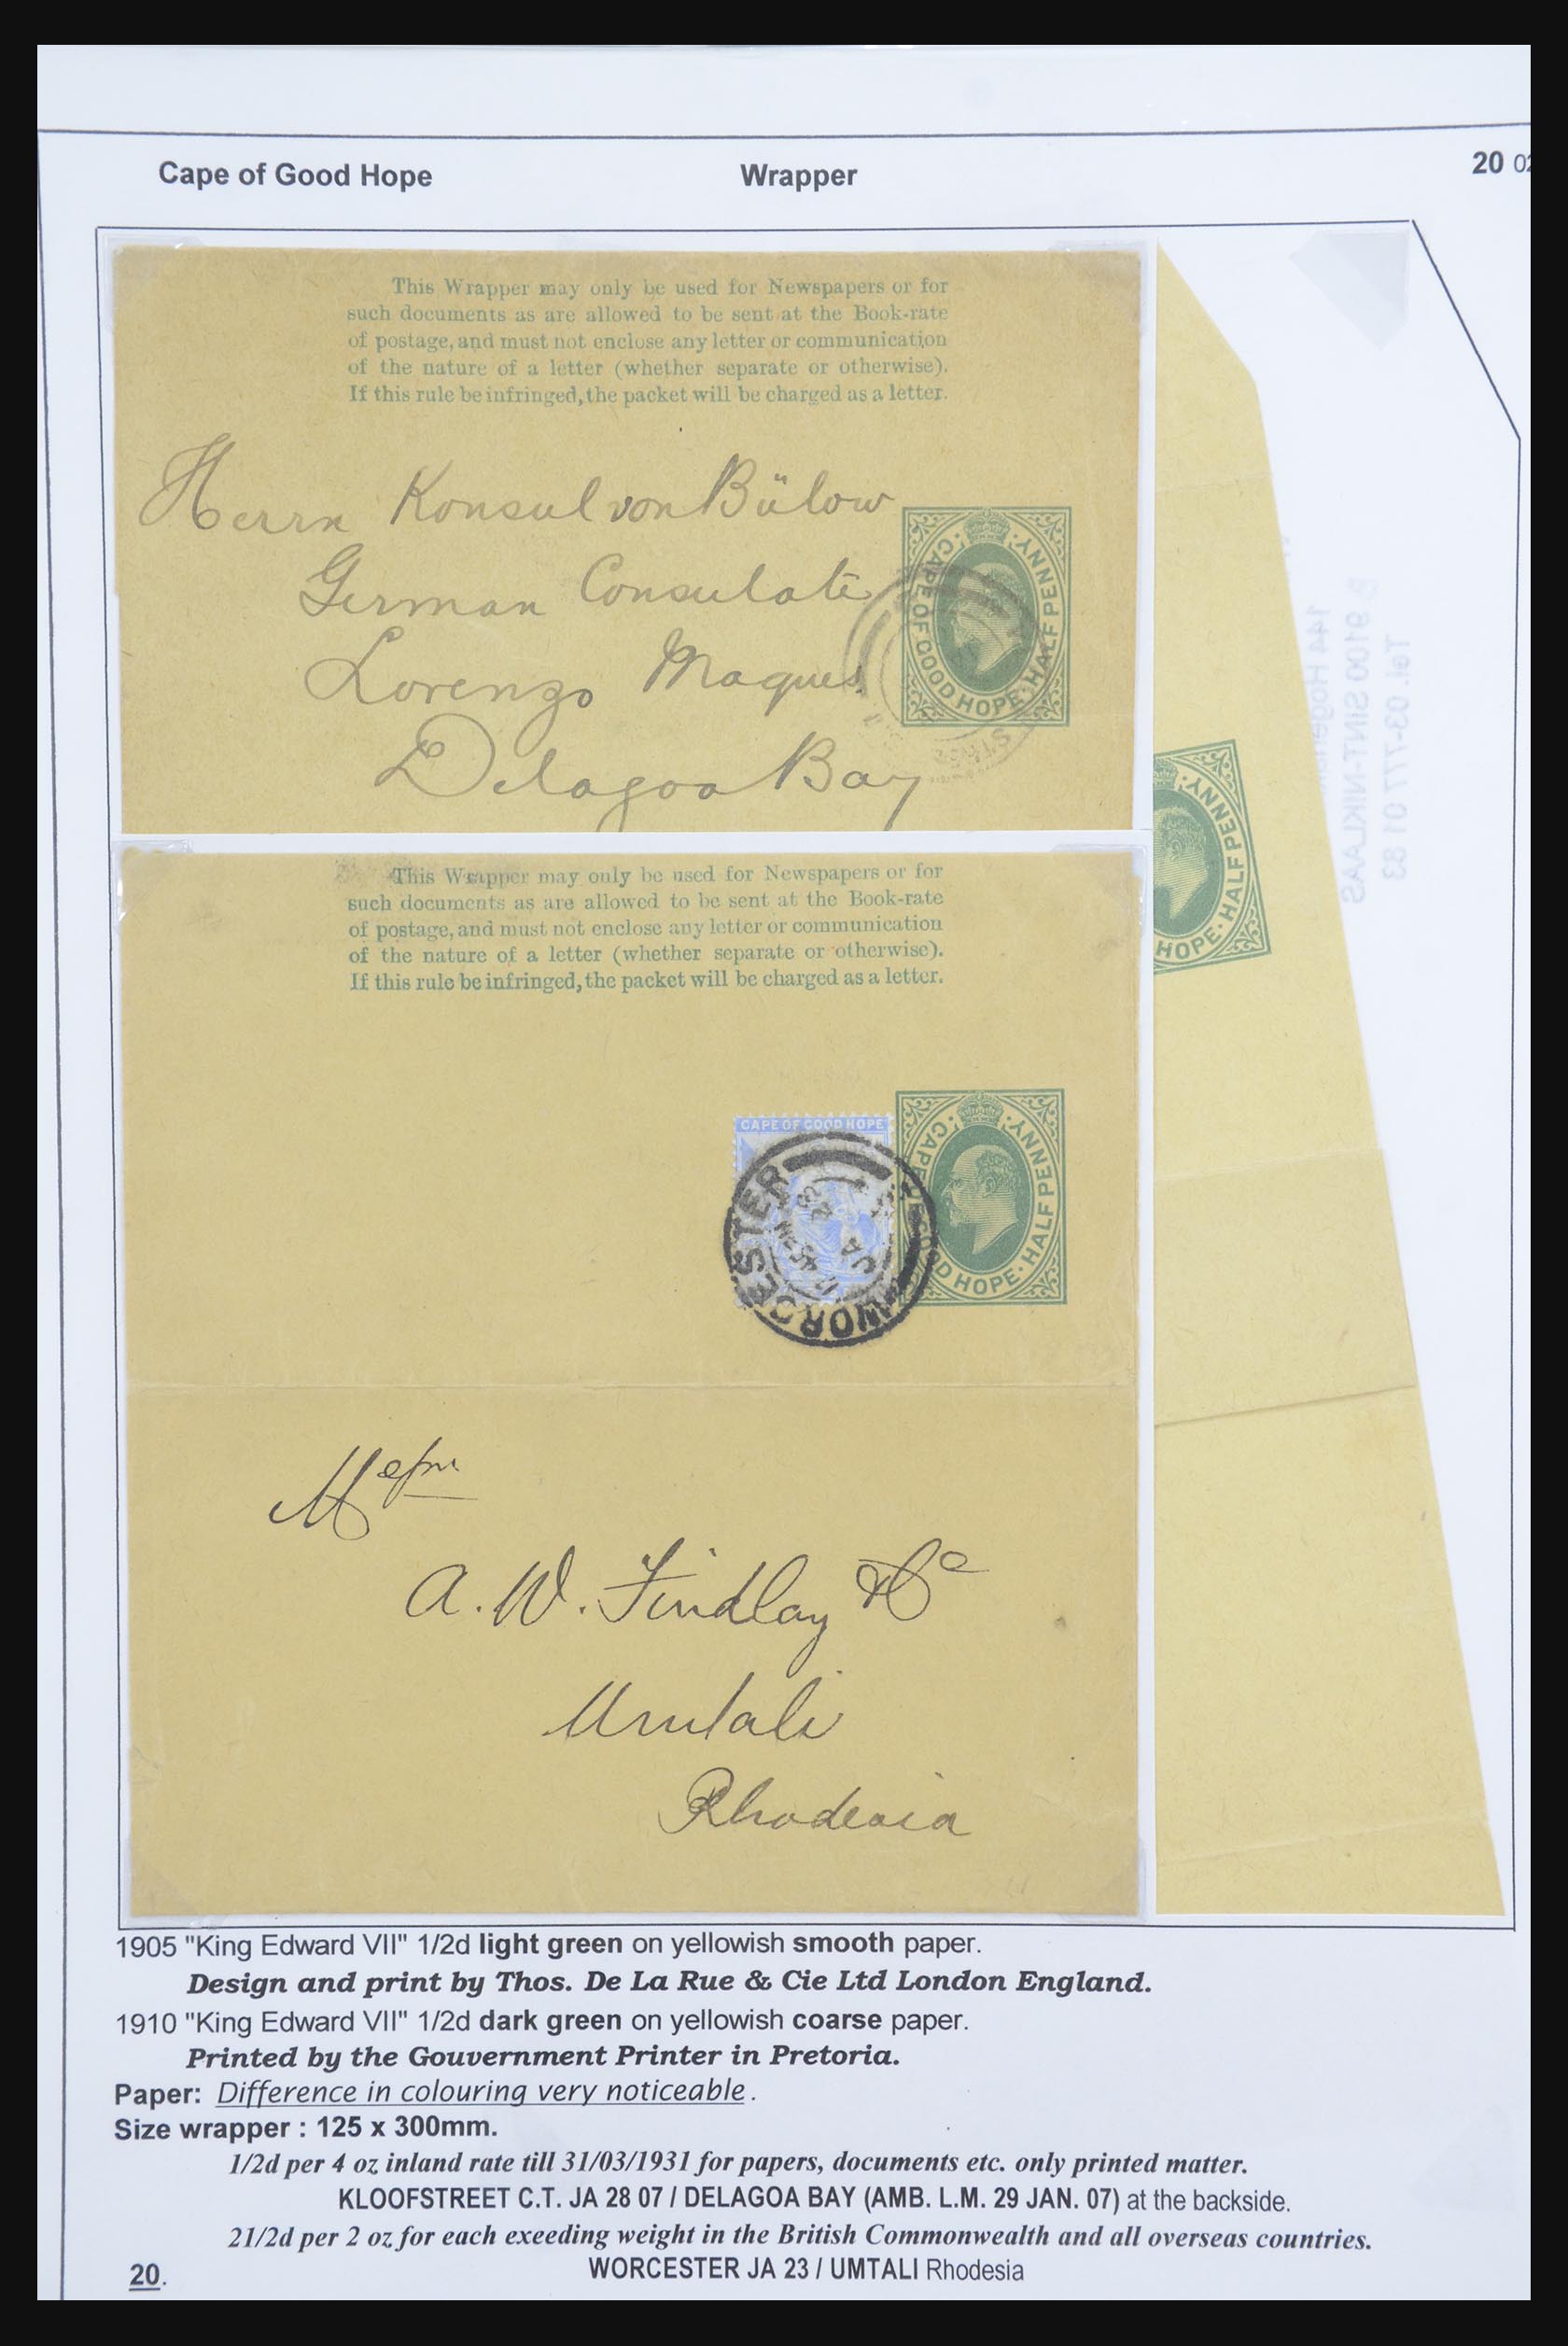 Cape of Good Hope
Wrapper
20 02
This Wrapper may only be used for Newspapers or for
such documents as are allowed to be sent at the Book-rate
of postage, and must not enclose any letter or communication
of the nature of a letter (whether separate or otherwise).
If this rule be infringed, the packet will be charged as a letter.
Herrn Konsul von Bülow
German Consulate
Lorenzo Maques
Delagoa Bay
CAPE OF GOOD HOPE · HALF PENNY
HOPE · HALF PENNY
144
B 9100 SINT-NIKLAAS
Tel. 03-777 01 83
This Wrapper may only be used for Newspapers or for
such documents as are allowed to be sent at the Book-rate
of postage, and must not enclose any letter or communication
of the nature of a letter (whether separate or otherwise).
If this rule be infringed, the packet will be charged as a letter.
CAPE OF GOOD HOPE
WORCESTER
CAPE OF GOOD HOPE · HALF PENNY
Messrs
A. W. Findlay & Co
Umtali
Rhodesia
1905 "King Edward VII" 1/2d light green on yellowish smooth paper.
Design and print by Thos. De La Rue & Cie Ltd London England.
1910 "King Edward VII" 1/2d dark green on yellowish coarse paper.
Printed by the Gouvernment Printer in Pretoria.
Paper: Difference in colouring very noticeable.
Size wrapper : 125 x 300mm.
1/2d per 4 oz inland rate till 31/03/1931 for papers, documents etc. only printed matter.
KLOOFSTREET C.T. JA 28 07 / DELAGOA BAY (AMB. L.M. 29 JAN. 07) at the backside.
21/2d per 2 oz for each exeeding weight in the British Commonwealth and all overseas countries.
WORCESTER JA 23 / UMTALI Rhodesia
20.